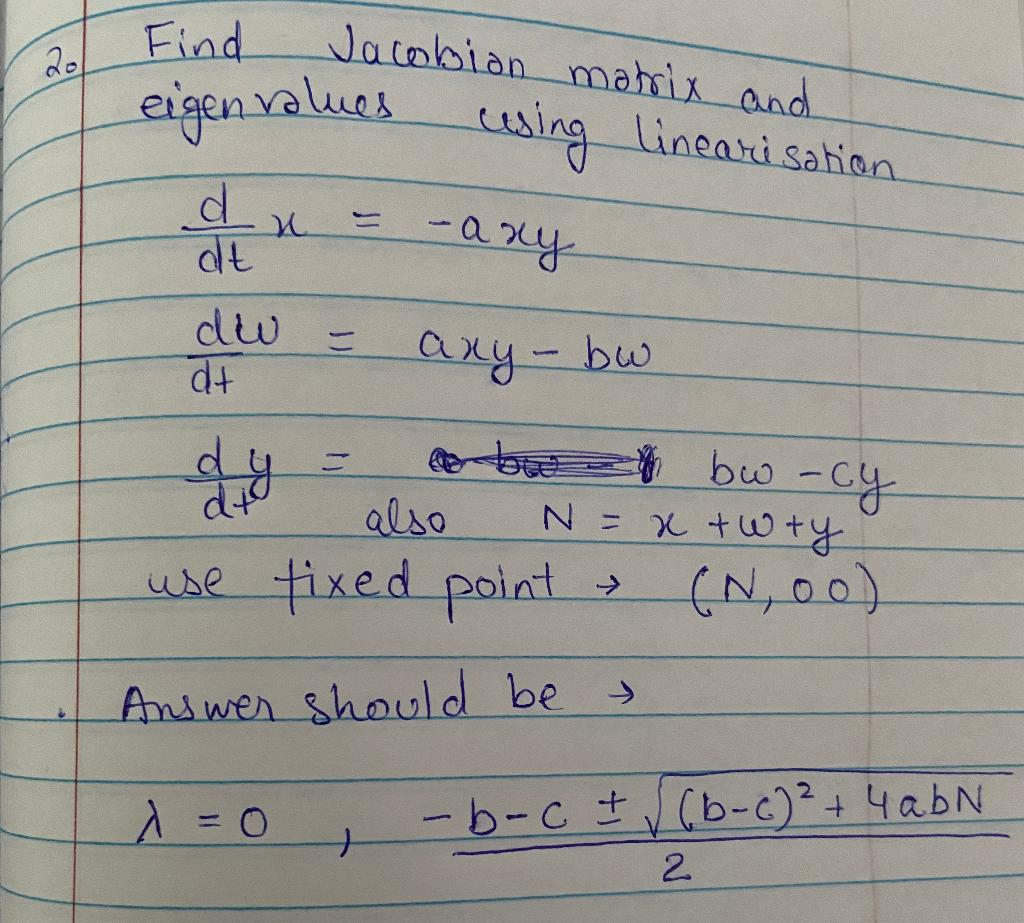 20 Find Jacobian matrix and
eigenvalues using linearisation
d/dt x = -axy
dw/dt = axy - bw
dy/dt = bw - cy
also N = x + w + y
use fixed point → (N, 0 0)
. Answer should be →
λ = 0 , (-b-c ± √((b-c)² + 4abN))/2